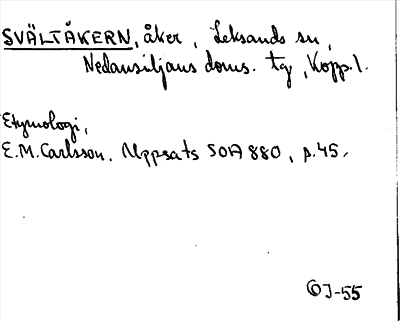 SVÄLTÅKERN, åker, Leksands sn,
Nedansiljans doms. tg, Kopp. l.
Etymologi,
E.M. Carlsson. Uppsats SOA 880, s. 45.
J-55